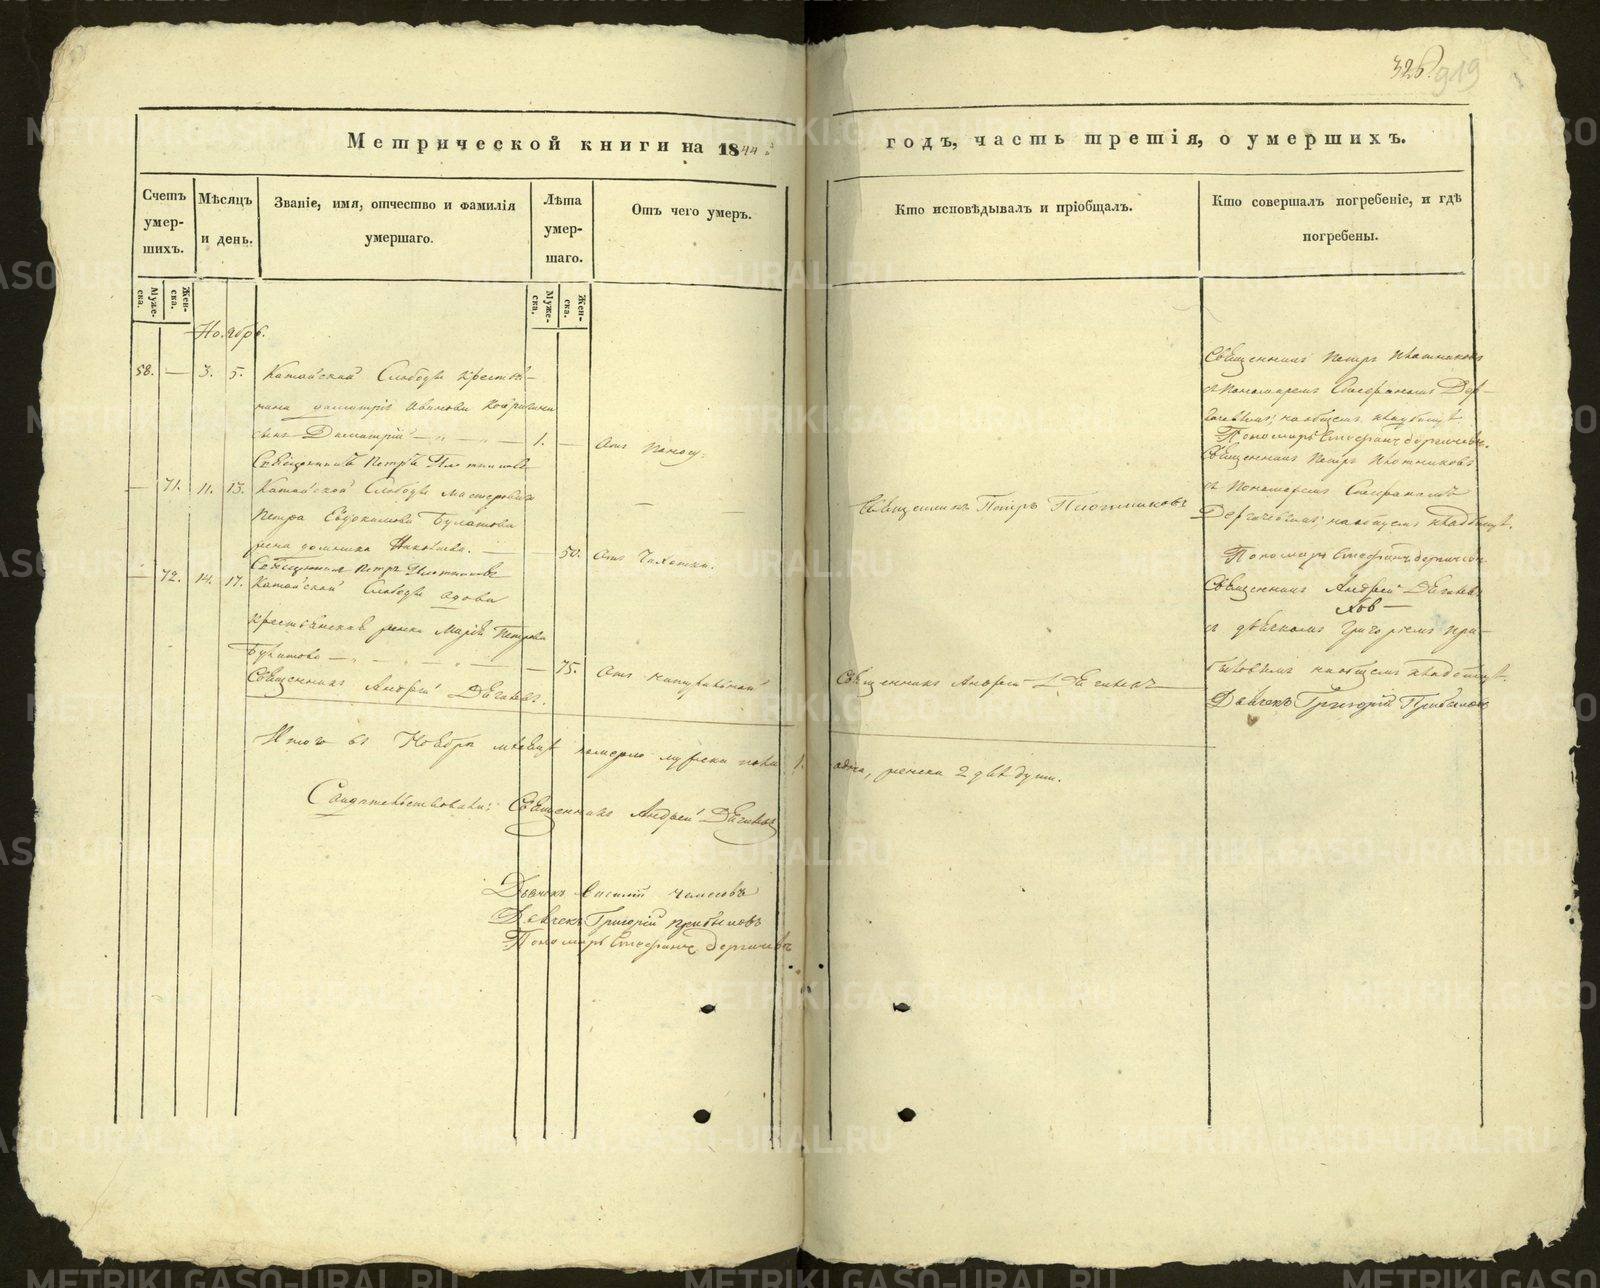 326. 919
Метрической книги на 1844 годъ, часть третія, о умершихъ.
Счетъ умер-шихъ.
Мѣсяцъ и день.
Званіе, имя, отчество и фамилія умершаго.
Лѣта умер-шаго.
Отъ чего умеръ.
Кто исповѣдывалъ и пріобщалъ.
Кто совершалъ погребеніе, и гдѣ погребены.
Муже-ска.
Жен-ска.
Муже-ска.
Жен-ска.
Ноября.
58. — 3. 5. Катайской Слободы крестья-
нина
сынъ Димитрій — 1. — Отъ поносу.
Священникъ Петръ Плотниковъ
Священникъ Петръ Плотниковъ
съ пономаремъ Стефаномъ Дер-
гачевымъ, на общемъ кладбищѣ.
Пономарь Стефанъ Дергачевъ.
— 71. 11. 13. Катайской Слободы мастероваго
Петра Евдокимова Булатова
жена — 50. Отъ чахотки.
Священникъ Петръ Плотниковъ
Священникъ Петръ Плотниковъ
Священникъ Петръ Плотниковъ
съ пономаремъ Стефаномъ
Дергачевымъ, на общемъ кладбищѣ.
Пономарь Стефанъ Дергачевъ
— 72. 14. 17. Катайской Слободы вдова
крестьянская жена Марія Петрова
— 75. Отъ натуральной
Священникъ Андрей Дягилевъ.
Священникъ Андрей Дягилевъ
Священникъ Андрей Дягилевъ
съ дьячкомъ Григоріемъ При-
быловымъ на общемъ кладбищѣ.
Дьячекъ Григорій Прибыловъ
Итого въ Ноябрѣ мѣсяцѣ померло мужеска пола 1. одна, женска 2 двѣ души.
Свидѣтельствовали: Священникъ Андрей Дягилевъ
Дьячекъ Василій
Дьячекъ Григорій Прибыловъ
Пономарь Стефанъ Дергачевъ
METRIKI.GASO-URAL.RU